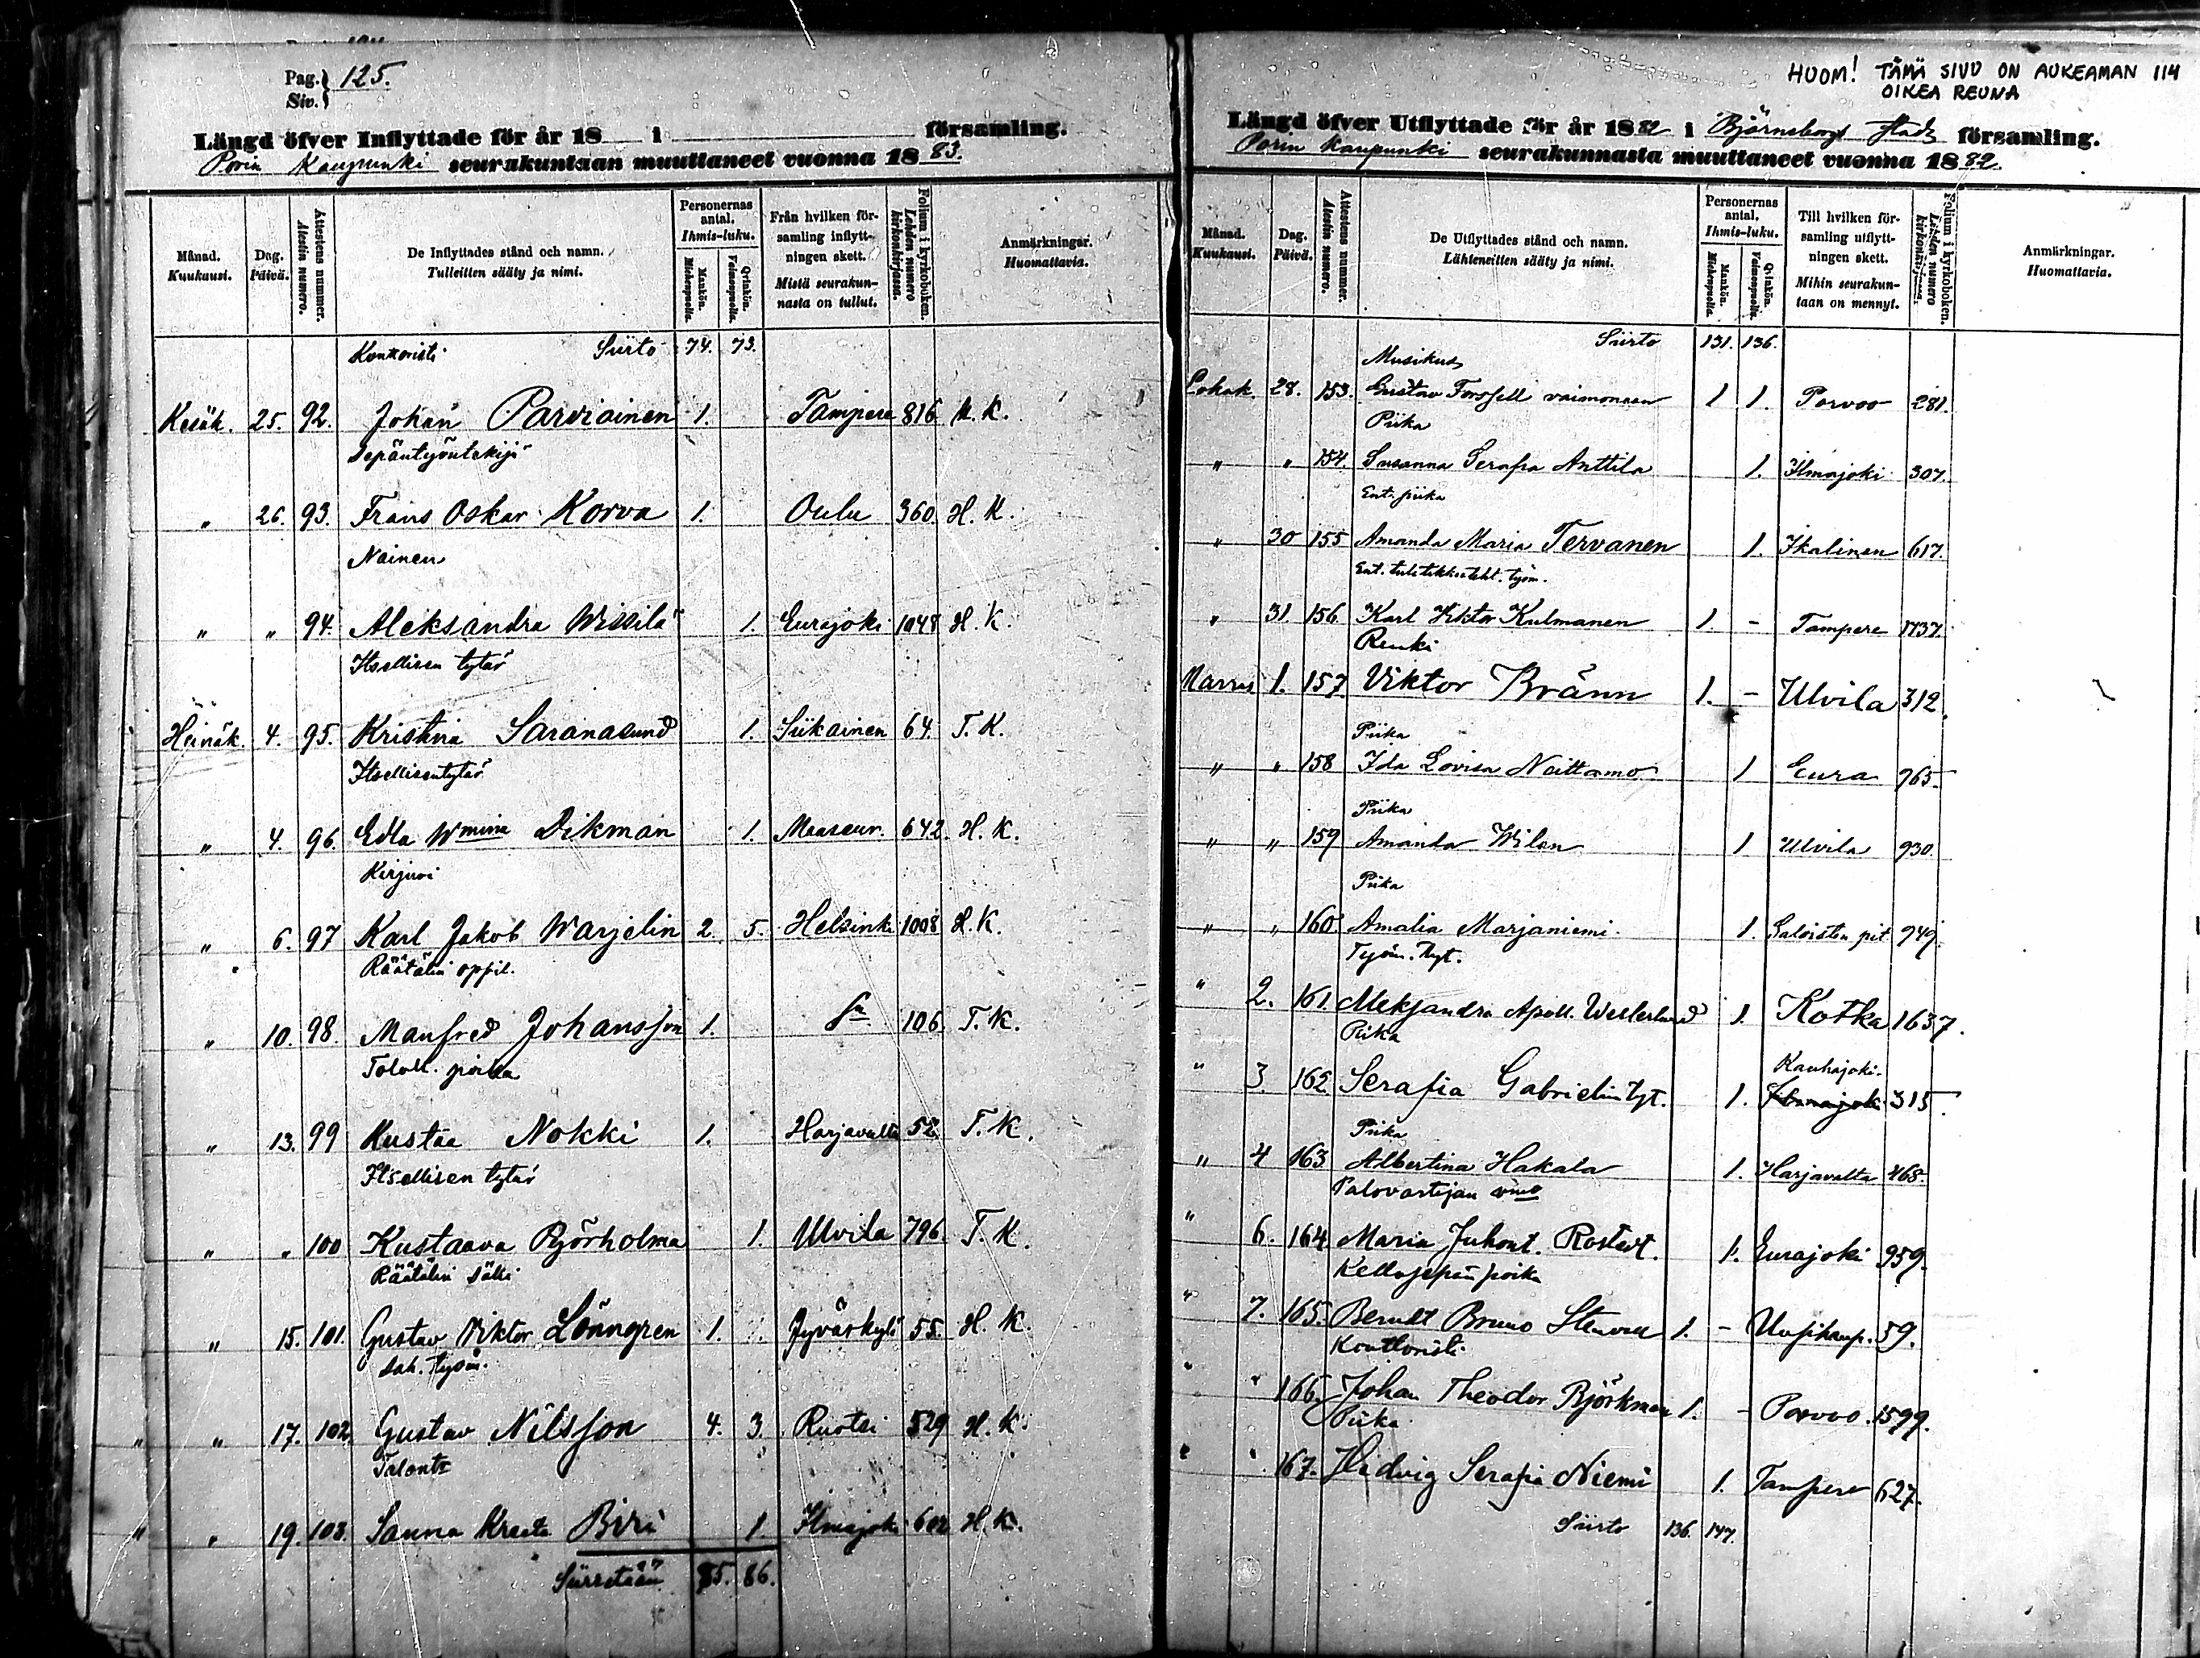 Pag. 125.
Siv.
Längd öfver Inflyttade för år 18 i församling.
Porin Kaupunki seurakuntaan muuttaneet vuonna 1883.
Månad. Kuukausi. Dag. Päivä. Attestens nummer. Atestin numero. De Inflyttades stånd och namn. Tulleitten sääty ja nimi. Personernas antal. Ihmis-luku. Mankön. Miehenpuolia. Qvinkön. Vaimonpuolia. Från hvilken församling inflyttningen skett. Mistä seurakunnasta on tullut. Folium i kyrkoboken. Lehden numero kirkonkirjassa. Anmärkningar. Huomattavia.
Konttoristi Siirto 74. 73.
Kesäk. 25. 92. Johan Parviainen 1. Tampere 816 H. K.
Sepäntyöntekijä
" 26. 93. Frans Oskar Korva 1. Oulu 360 H. K.
Nainen
" " 94. Aleksandra Wissilä 1. Eurajoki 1048 H. K.
Itsellisen tytär
Heinäk. 4. 95. Kristina Saranasund 1. Siikainen 64. T. K.
Itsellisentytär
" 4. 96. Edla Wmina Dikman 1. Maaseur. 642. H. K.
Kirjuri
" 6. 97 Karl Jakob Warjelin 2. 5. Helsink. 1008 H. K.
Räätälin oppil.
" 10. 98. Manfred Johansson 1. 106. T. K.
Taloll. poika
" 13. 99 Kustaa Nokki 1. Harjavalta 52 T. K.
Itsellisen tytär
" " 100 Kustaava Björholma 1. Ulvila 796. T. K.
Räätälin sälli
" 15. 101. Gustav Viktor Lönngren 1. Jyväskylä 55. H. K.
Sah. työm.
" " 17. 102 Gustav Nilsson 4. 3. Ruotsi 529 H. K.
Talont.
" " 19. 103. Sanna Kreeta Biri 1 Ilmajoki 602 H. K.
Siirretään 85. 86.
HUOM! TÄMÄ SIVU ON AUKEAMAN 114
OIKEA REUNA
Längd öfver Utflyttade för år 1882 i Björneborgs stads församling.
Porin Kaupunki seurakunnasta muuttaneet vuonna 1882.
Månad. Kuukausi. Dag. Päivä. Attestens nummer. Atestin numero. De Utflyttades stånd och namn. Lähteneitten sääty ja nimi. Personernas antal. Ihmis-luku. Mankön. Miehenpuolia. Qvinkön. Vaimonpuolia. Till hvilken församling utflyttningen skett. Mihin seurakuntaan on mennyt. Folium i kyrkoboken. Lehden numero kirkonkirjassa. Anmärkningar. Huomattavia.
Siirto 131. 136.
Musikus
Lokak. 28. 153. Gustav Forssell vaimoneen 1 1. Porvoo 281.
Piika
" " 154. Susanna Serafia Anttila 1. Ilmajoki 307.
Ent. piika
" 30 155 Amanda Maria Tervanen 1. Ikalinen 617.
Ent. tulitikkuteht. työm.
" 31. 156. Karl Viktor Kulmanen 1. - Tampere 1737.
Renki
Marras 1. 157. Viktor Bränn 1. - Ulvila 312.
Piika
" " 158 Ida Lovisa Neittamo 1 Eura 965.
Piika
" " 159 Amanda Wilen 1 Ulvila 930.
Piika
" " 160 Amalia Marjaniemi 1. Saloisten pit. 949.
Työm. tyt.
" 2. 161. Aleksandra Apoll. Westerlund 1. Kotka 1637.
Piika
Kauhajoki.
" 3. 162. Serafia Gabrielin tyt. 1. Ilmajoki 315.
Piika
" 4 163 Albertina Hakala 1. Harjavalta 468.
Palovartijan vmo
" 6. 164 Maria Juhont. Rostedt. 1. Eurajoki 959.
Kellosepän poika
" 7. 165. Berndt Bruno 1. - Uusikaup. 59.
Konttoristi
" " 166. Johan Theodor Björkman 1. - Porvoo. 1599.
Piika
" " 167. Hedvig Serafia Niemi 1. Tampere 627.
Siirto 136. 147.